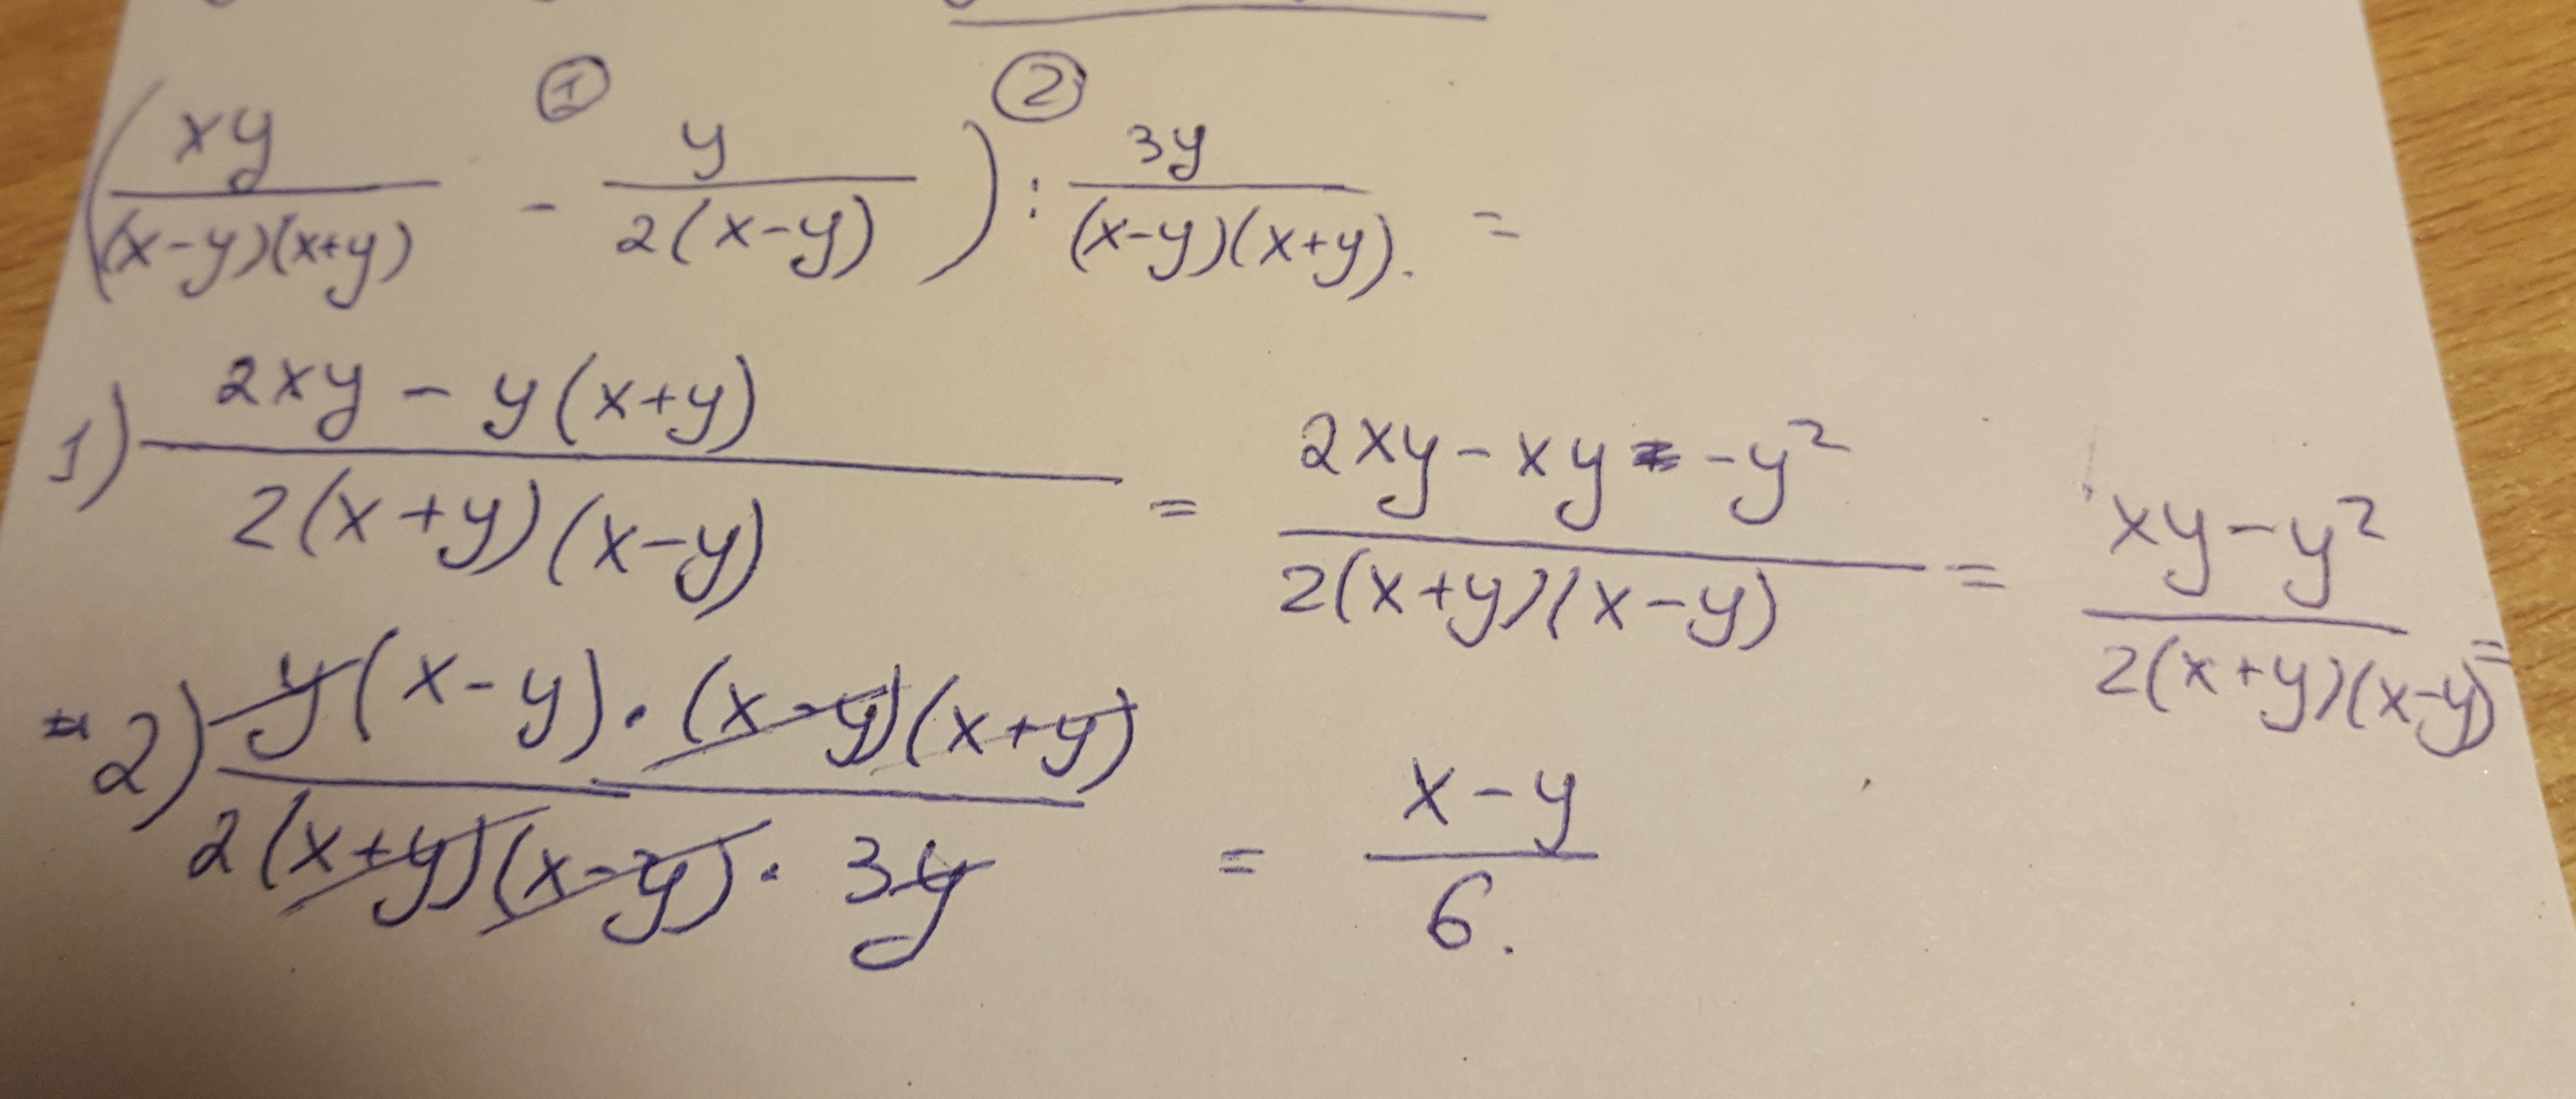 ① ②
(xy/((x-y)(x+y)) - y/(2(x-y))) : 3y/((x-y)(x+y)). =
1) (2xy - y(x+y))/(2(x+y)(x-y)) = (2xy - xy - y²)/(2(x+y)(x-y)) = (xy - y²)/(2(x+y)(x-y)) =
= 2) (y(x-y)·(x-y)(x+y))/(2(x+y)(x-y)·3y) = (x-y)/6.